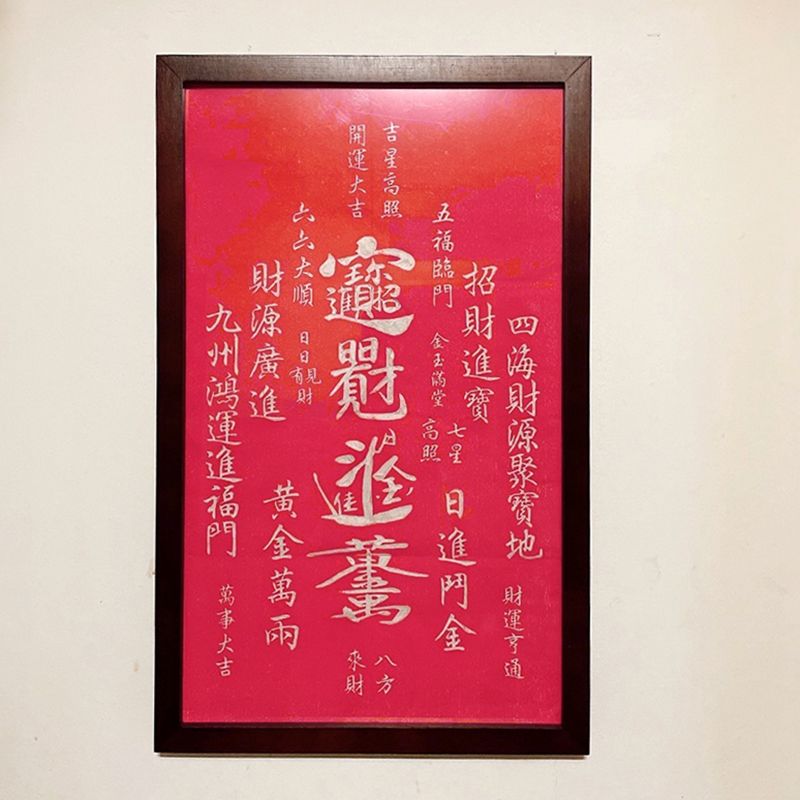 四海財源聚寶地
財運亨通
招財進寶
日進鬥金
五福臨門
金玉滿堂
七星
高照
吉星高照
開運大吉
招財進寶
日日有見財
日進斗金
黃金萬兩
八方
來財
六六大順
日日有見財
財源廣進
黃金萬兩
九州鴻運進福門
萬事大吉